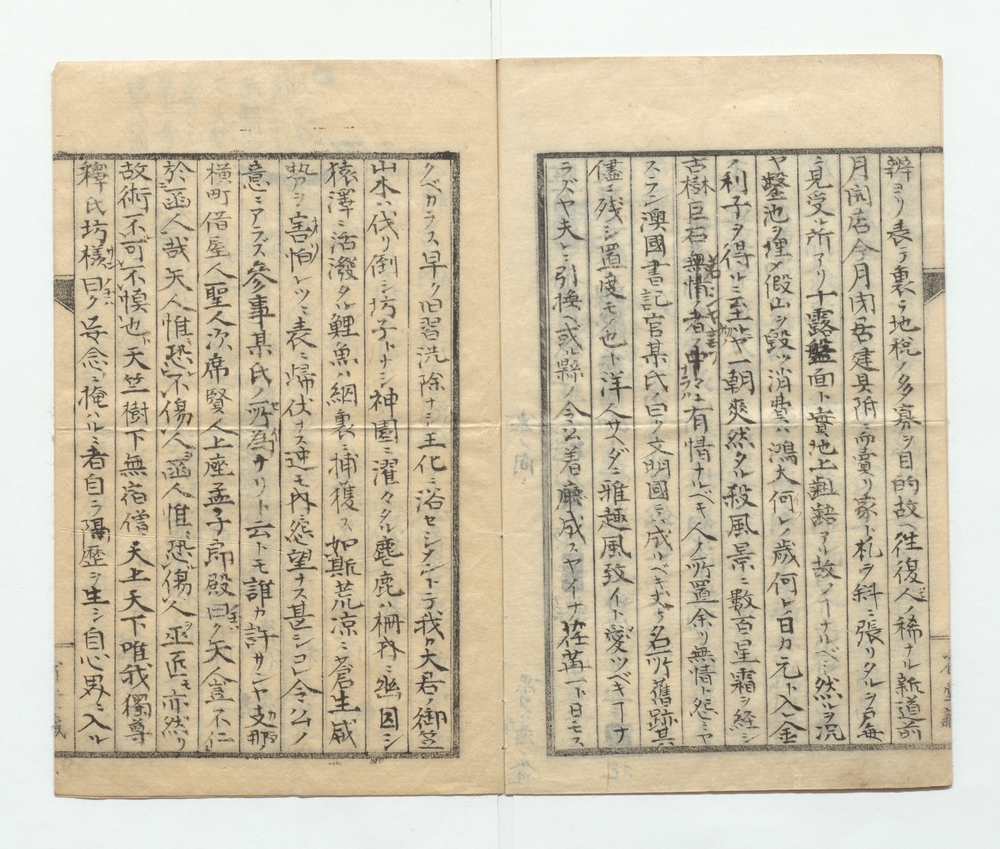 辨ヨリ表ラ裏ラ地税ノ多寡ヲ目的故ヘ往復人ノ稀ナル新道前
月開店今月閉店建具附ニ而賣リ家ト札ヲ斜ニ張リタルヲ毎
ニ見受ル所アリ十露盤面ト實地上齟齬アル故ノ┐ナルベシ然ルヲ况
ヤ鑿池ヲ埋メ假山ヲ毀ツ消費ハ鴻大何レノ歳何レノ日カ元ト入金
ノ利子ヲ得ルニ至ルヤ一朝爽然タル殺風景ニ數百星霜ヲ経シ
古樹巨石無情ノ者ノ中々ニ有情ナルベキ人ノ所置余リ無情ト怨ミヤ
スラン澳國書記官某氏ノ曰ク文明國ニ成ルベキ丈ケ名所舊跡其
儘ニ残シ置度モノ也ト洋人サヘダニ雅趣風致イト愛ツベキ┐ナ
ラズヤ夫レニ引換ヘ或ル縣ノ令公着廰成スヤイナ在苒一ト日モス
クベカラス早ク旧習洗除ナシ王化ニ浴セシメントテ我カ大君ノ御笠
山木ハ伐リ倒シ坊子トナシ神園ニ濯々タル麀鹿ハ柵内ニ幽囚シ
猿澤ニ活潑タル鯉魚ハ網裏ニ捕獲ス如斯荒凉ニ蒼生威
勢ヲ害怕レツヽ表ニ帰伏ナス迚モ内怨望ナス甚シコレ令公ノ
意ニアラズ參事某氏ノ所為ナリト云トモ誰カ許サンヤ支那
横町借屋人聖人次席賢人上座孟子郎殿曰ク矢人豈不仁
於函人哉矢人惟恐不傷人函人惟恐傷人巫匠モ亦然リ
故術不可不慎也ト天竺樹下無宿僧天上天下唯我獨尊
釋氏坊樣曰ク妄念ニ掩ハルヽ者自ラ隔歴ヲ生シ自心界ニ入ル